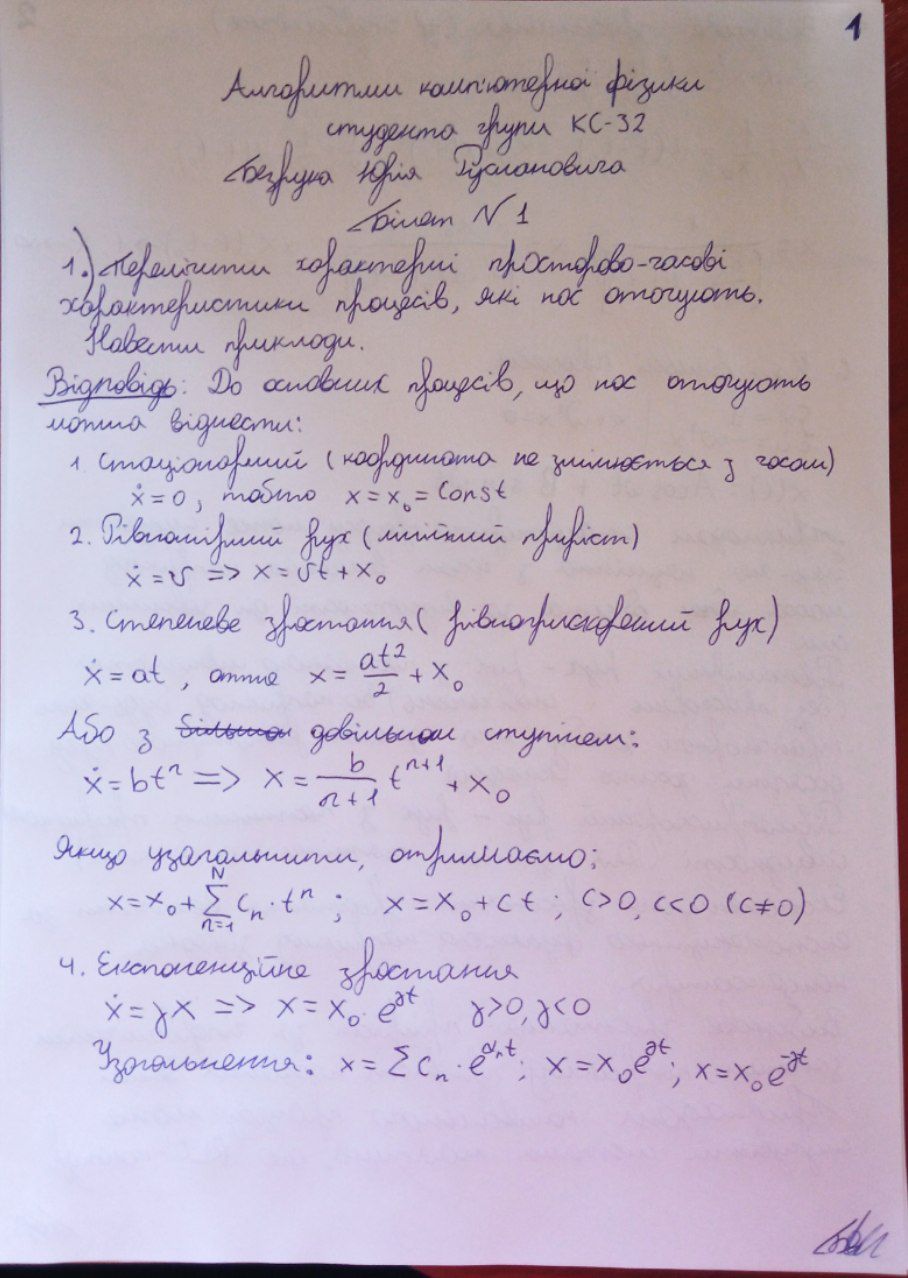 1
Алгоритми комп'ютерної фізики
студента групи КС-32
Безрука Юрія Руслановича
Білет №1
1.) Перелічити характерні просторово-часові
характеристики процесів, які нас оточують.
Навести приклади.
Відповідь: До основних процесів, що нас оточують
можна віднести:
1. Стаціонарний (координата не змінюється з часом)
ẋ = 0, тобто x = x₀ = Const
2. Рівномірний рух (лінійний приріст)
ẋ = v => x = vt + x₀
3. Степеневе зростання (рівноприскорений рух)
ẋ = at, отже x = at²/2 + x₀
Або з більшою довільном ступнем:
ẋ = btⁿ => x = b/(n+1) tⁿ⁺¹ + x₀
Якщо узагальнити, отримаємо:
x = x₀ + ∑ₙ₌₁ᴺ cₙ · tⁿ ; x = x₀ + ct ; c>0, c<0 (c≠0)
4. Експоненційне зростання
ẋ = γx => x = x₀ · e^γt γ>0, γ<0
Узагальнення: x = ∑ cₙ · e^αₙt ; x = x₀e^γt ; x = x₀e^-γt